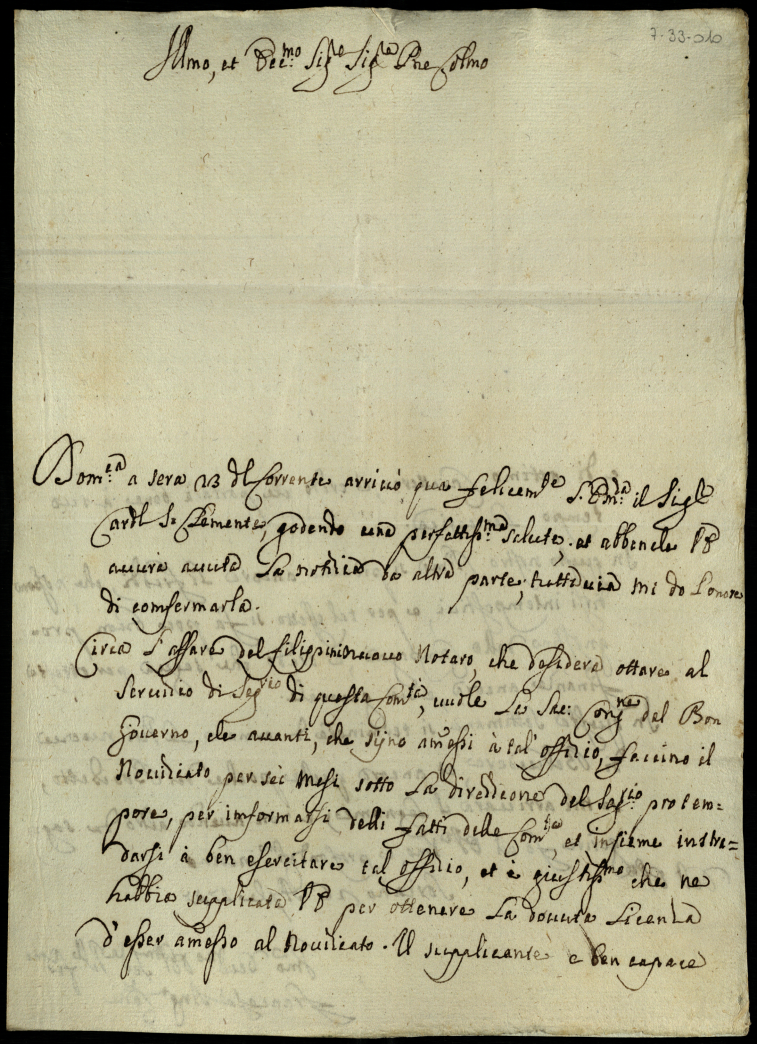 7-33-010
Illmo, et Rev:mo Sig.re Sig.re Pne Colmo
Dom:ca a sera 23 del Corrente arrivò qua felicem.te S. Em:za il Sig.re
Cardl S. Clemente, godendo una perfettiss:ma salute, et abbenche VS
averà avuta la notitia da altra parte, tuttavia mi do l'onore
di comfermarla.
Circa l'affare del Filippini nuovo Notaro, che desidera ottare al
servitio di Seg.rio di questa Com.tà, vuole la Sac: Cong.ne del Bon
Governo, che avanti, che sijno amessi à tal' offitio, faccino il
Novitiato per sei mesi sotto la direttione del Seg.rio protem=
pore, per imformarsi delli fatti delle Com.tà, et insieme instra=
darsi à ben esercitare tal offitio, et è giustiss:mo che ne
habbia supplicata VS per ottenere la dovuta licenza
d'esser amesso al Novitiato. Il supplicante è ben capace